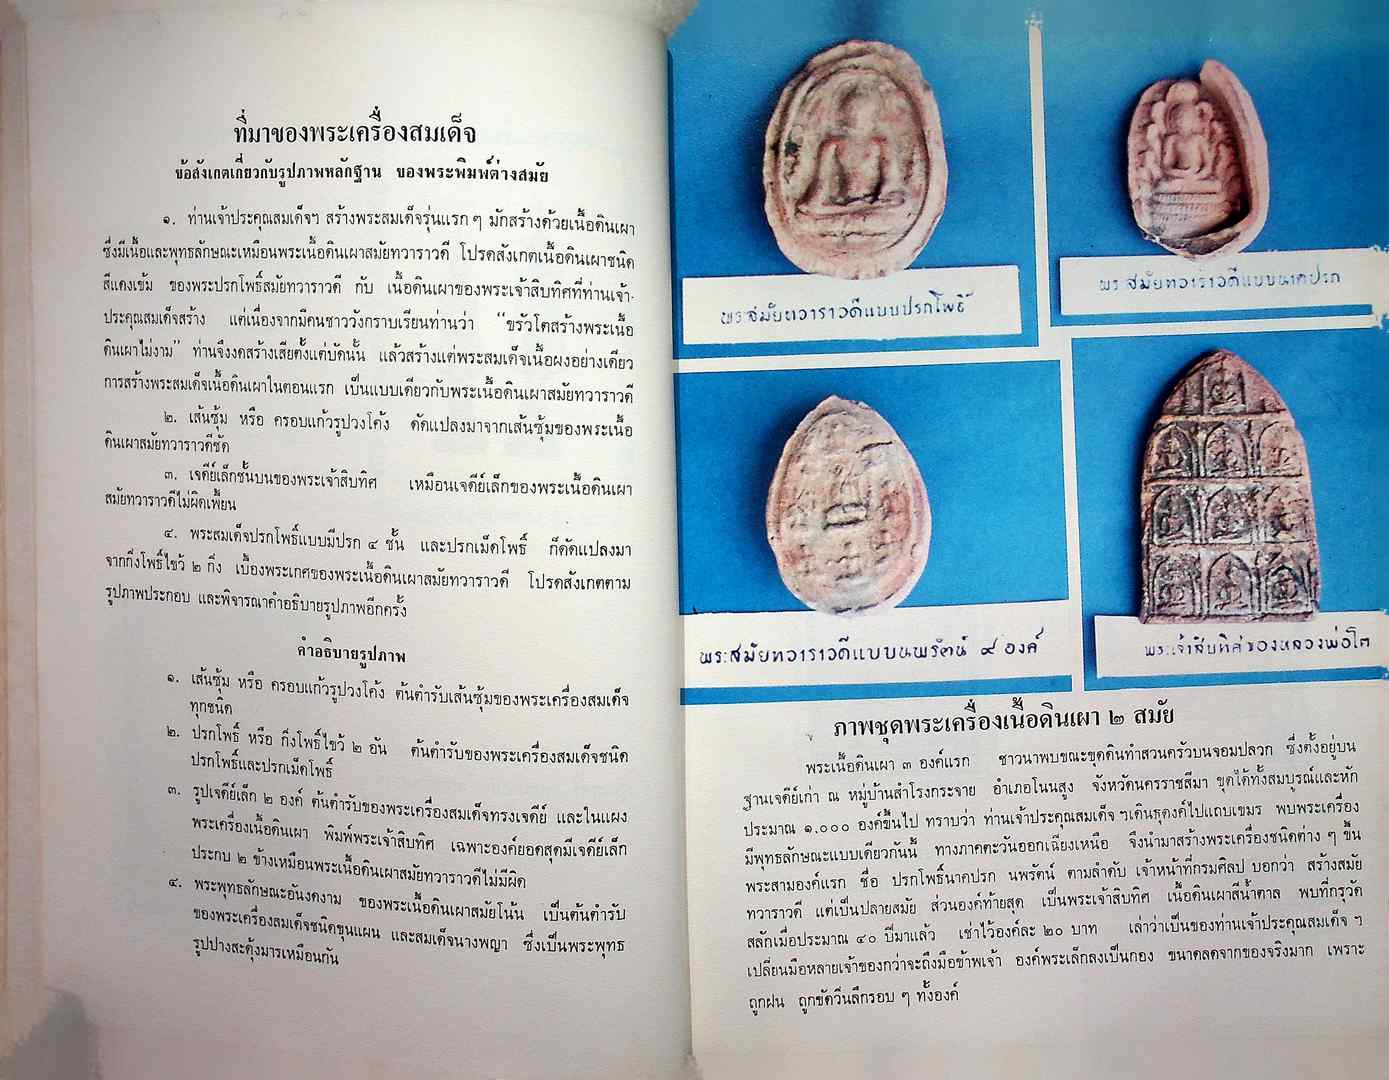 ที่มาของพระเครื่องสมเด็จ
ข้อสังเกตเกี่ยวกับรูปภาพหลักฐาน ของพระพิมพ์ต่างสมัย
๑. ท่านเจ้าประคุณสมเด็จฯ สร้างพระสมเด็จรุ่นแรก ๆ มักสร้างด้วยเนื้อดินเผา
ซึ่งมีเนื้อและพุทธลักษณะเหมือนพระเนื้อดินเผาสมัยทวาราวดี โปรดสังเกตเนื้อดินเผาชนิด
สีแดงเข้ม ของพระปรกโพธิ์สมัยทวาราวดี กับ เนื้อดินเผาของพระเจ้าสิบทิศที่ท่านเจ้า-
ประคุณสมเด็จสร้าง แต่เนื่องจากมีคนชาววังกราบเรียนท่านว่า “ขรัวโตสร้างพระเนื้อ
ดินเผาไม่งาม” ท่านจึงงดสร้างเสียตั้งแต่บัดนั้น แล้วสร้างแต่พระสมเด็จเนื้อผงอย่างเดียว
การสร้างพระสมเด็จเนื้อดินเผาในตอนแรก เป็นแบบเดียวกับพระเนื้อดินเผาสมัยทวาราวดี
๒. เส้นซุ้ม หรือ ครอบแก้วรูปวงโค้ง ดัดแปลงมาจากเส้นซุ้มของพระเนื้อ
ดินเผาสมัยทวาราวดีชัด
๓. เจดีย์เล็กชั้นบนของพระเจ้าสิบทิศ เหมือนเจดีย์เล็กของพระเนื้อดินเผา
สมัยทวาราวดีไม่ผิดเพี้ยน
๔. พระสมเด็จปรกโพธิ์แบบมีปรก ๔ ชั้น และปรกเม็ดโพธิ์ ก็ดัดแปลงมา
จากกิ่งโพธิ์ไขว้ ๒ กิ่ง เบื้องพระเกศของพระเนื้อดินเผาสมัยทวาราวดี โปรดสังเกตตาม
รูปภาพประกอบ และพิจารณาคำอธิบายรูปภาพอีกครั้ง
คำอธิบายรูปภาพ
๑. เส้นซุ้ม หรือ ครอบแก้วรูปวงโค้ง ต้นตำรับเส้นซุ้มของพระเครื่องสมเด็จ
ทุกชนิด
๒. ปรกโพธิ์ หรือ กิ่งโพธิ์ไขว้ ๒ อัน ต้นตำรับของพระเครื่องสมเด็จชนิด
ปรกโพธิ์และปรกเม็ดโพธิ์
๓. รูปเจดีย์เล็ก ๒ องค์ ต้นตำรับของพระเครื่องสมเด็จทรงเจดีย์ และในแผง
พระเครื่องเนื้อดินเผา พิมพ์พระเจ้าสิบทิศ เฉพาะองค์ยอดสุดมีเจดีย์เล็ก
ประกบ ๒ ข้างเหมือนพระเนื้อดินเผาสมัยทวาราวดีไม่มีผิด
๔. พระพุทธลักษณะอันงดงาม ของพระเนื้อดินเผาสมัยโน้น เป็นต้นตำรับ
ของพระเครื่องสมเด็จชนิดขุนแผน และสมเด็จนางพญา ซึ่งเป็นพระพุทธ
รูปปางสะดุ้งมารเหมือนกัน
พระสมัยทวาราวดีแบบปรกโพธิ์
พระสมัยทวาราวดีแบบนาคปรก
พระสมัยทวาราวดีแบบนพรัตน์ ๙ องค์
พระเจ้าสิบทิศของหลวงพ่อโต
ภาพชุดพระเครื่องเนื้อดินเผา ๒ สมัย
พระเนื้อดินเผา ๓ องค์แรก ชาวนาพบขณะขุดดินทำสวนครัวบนจอมปลวก ซึ่งตั้งอยู่บน
ฐานเจดีย์เก่า ณ หมู่บ้านสำโรงกระจาย อำเภอโนนสูง จังหวัดนครราชสีมา ขุดได้ทั้งสมบูรณ์และหัก
ประมาณ ๑.๐๐๐ องค์ขึ้นไป ทราบว่า ท่านเจ้าประคุณสมเด็จ ฯเดินธุดงค์ไปแถบเขมร พบพระเครื่อง
มีพุทธลักษณะแบบเดียวกันนี้ ทางภาคตะวันออกเฉียงเหนือ จึงนำมาสร้างพระเครื่องชนิดต่าง ๆ ขึ้น
พระสามองค์แรก ชื่อ ปรกโพธิ์นาคปรก นพรัตน์ ตามลำดับ เจ้าหน้าที่กรมศิลป บอกว่า สร้างสมัย
ทวาราวดี แต่เป็นปลายสมัย ส่วนองค์ท้ายสุด เป็นพระเจ้าสิบทิศ เนื้อดินเผาสีน้ำตาล พบที่กรุวัด
สลักเมื่อประมาณ ๔๐ ปีมาแล้ว เช่าไว้องค์ละ ๒๐ บาท เล่าว่าเป็นของท่านเจ้าประคุณสมเด็จ ฯ
เปลี่ยนมือหลายเจ้าของกว่าจะถึงมือข้าพเจ้า องค์พระเล็กลงเป็นกอง ขนาดลดจากของจริงมาก เพราะ
ถูกฝน ถูกขัดวีนลึกรอบ ๆ ทั้งองค์